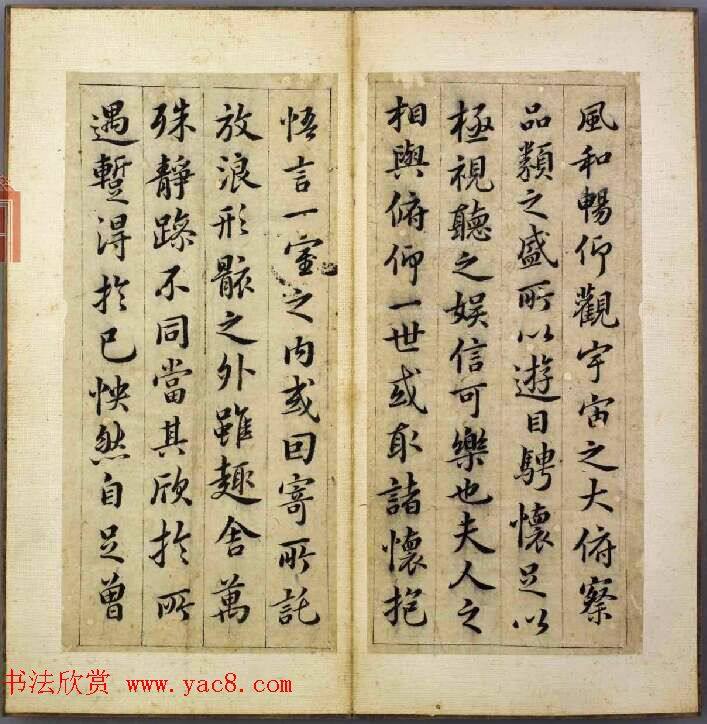 風和暢仰觀宇宙之大俯察
品類之盛所以遊目騁懷足以
極視聽之娛信可樂也夫人之
相與俯仰一世或取諸懷抱
悟言一室之內或因寄所託
放浪形骸之外雖趣舍萬
殊靜躁不同當其欣於所
遇蹔得於己怏然自足曾
书法欣赏 www.yac8.com